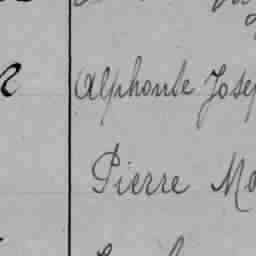 Alphonse Josep
Pierre Ma